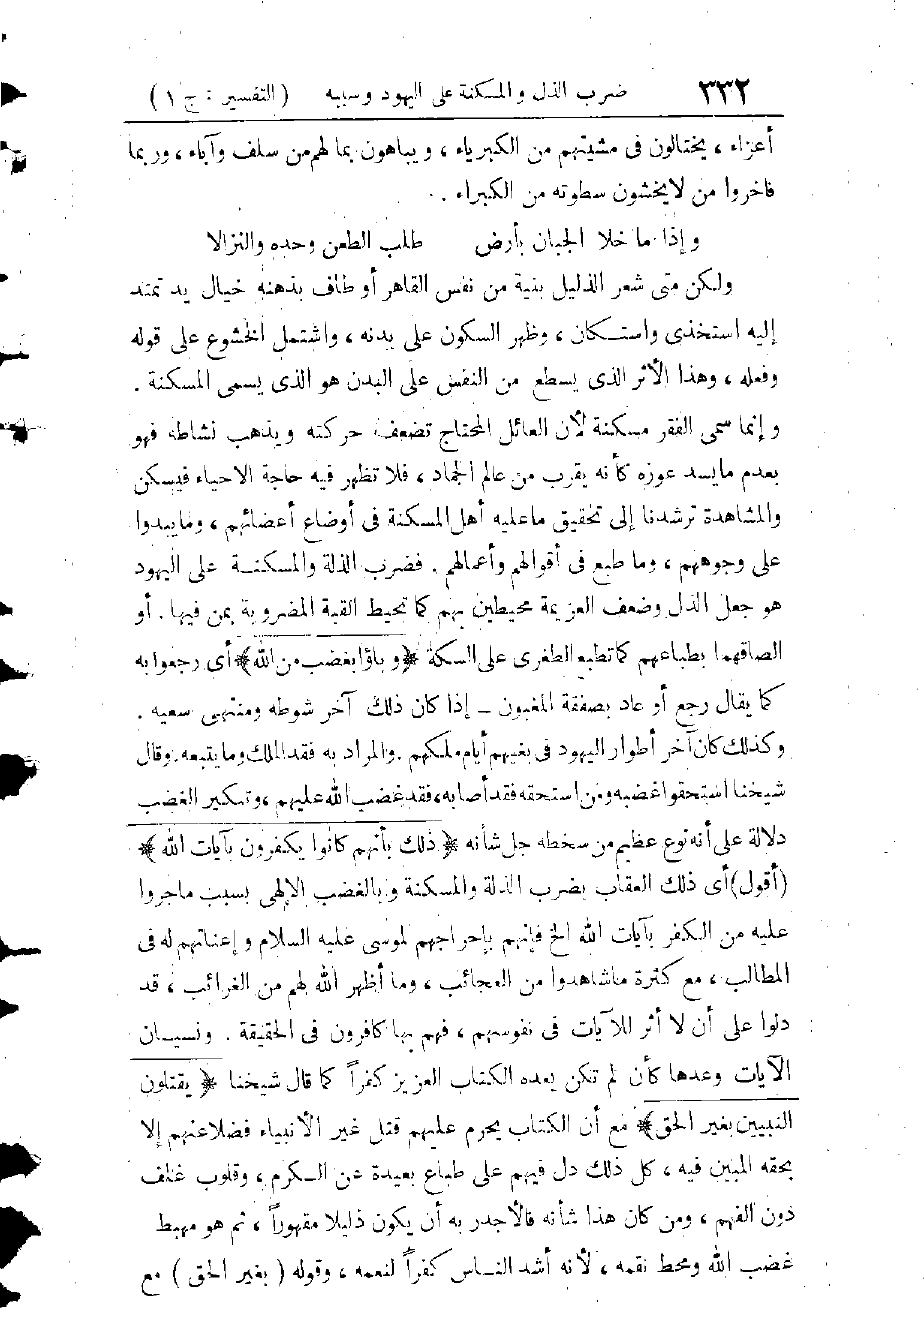 ٣٣٢ ضرب الذل والمسكنة على اليهود وسببه (التفسير : ج ١)
أعزاء ، يختالون فى مشيتهم من الكبرياء ، ويباهون بما لهم من سلف وآباء ، وربما
فاخروا من لايخشون سطوته من الكبراء .
وإذا ما خلا الجبان بأرض طلب الطعن وحده والنزالا
ولكن متى شعر الذليل بنية من نفس القاهر أو طاف بذهنه خيال يد تمتد
إليه استخذى واستكان ، وظهر السكون على بدنه ، واشتمل الخشوع على قوله
وفعله ، وهذا الأثر الذى يسطع من النفس على البدن هو الذى يسمى المسكنة .
وإنما سمى الفقر مسكنة لأن العائل المحتاج تضعف حركته ويذهب نشاطه فهو
بعدم مايسد عوزه كأنه يقرب من عالم الجماد ، فلا تظهر فيه حاجة الاحياء فيسكن
والمشاهدة ترشدنا إلى تحقيق ماعليه أهل المسكنة فى أوضاع أعضائهم ، ومايبدوا
على وجوههم ، وما طبع فى أقوالهم وأعمالهم . فضرب الذلة والمسكنة على اليهود
هو جعل الذل وضعف العزيمة محيطين بهم كما تحيط القبة المضروبة بمن فيها . أو
الصاقهما بطباعهم كما تطبع الطغرى على السكة ﴿ وباؤا بغضب من الله ﴾ أى رجعوا به
كما يقال رجع أو عاد بصفقة المغبون – إذا كان ذلك آخر شوطه ومنتهى سعيه .
وكذلك كان آخر أطوار اليهود فى بغيهم أيام ملكهم . والمراد به فقد الملك ومايتبعه . وقال
شيخنا استحقوا غضبه ومن استحقه فقد أصابه، فقد غضب الله عليهم ، وتنكير الغضب
دلالة على أنه نوع عظيم من سخطه جل شأنه ﴿ ذلك بأنهم كانوا يكفرون بآيات الله ﴾
(أقول) أى ذلك العقاب بضرب الذلة والمسكنة وبالغضب الإلهى بسبب ماجروا
عليه من الكفر بآيات الله الخ فإنهم بإحراجهم لموسى عليه السلام وإعناتهم له فى
المطالب ، مع كثرة ماشاهدوا من العجائب ، وما أظهر الله لهم من الغرائب ، قد
دلوا على أن لا أثر للآيات فى نفوسهم ، فهم بها كافرون فى الحقيقة . ونسيان
الآيات وعدها كأن لم تكن يعده الكتاب العزيز كفراً كما قال شيخنا ﴿ يقتلون
النبيين بغير الحق ﴾ مع أن الكتاب يحرم عليهم قتل غير الأنبياء فضلا عنهم إلا
بحقه المبين فيه ، كل ذلك دل فيهم على طباع بعيدة عن الكرم ، وقلوب غلف
دون الفهم ، ومن كان هذا شأنه فالأجدر به أن يكون ذليلا مقهوراً ، ثم هو مهبط
غضب الله ومحط نقمه ، لأنه أشد الناس كفراً لنعمه ، وقوله ( بغير الحق ) مع